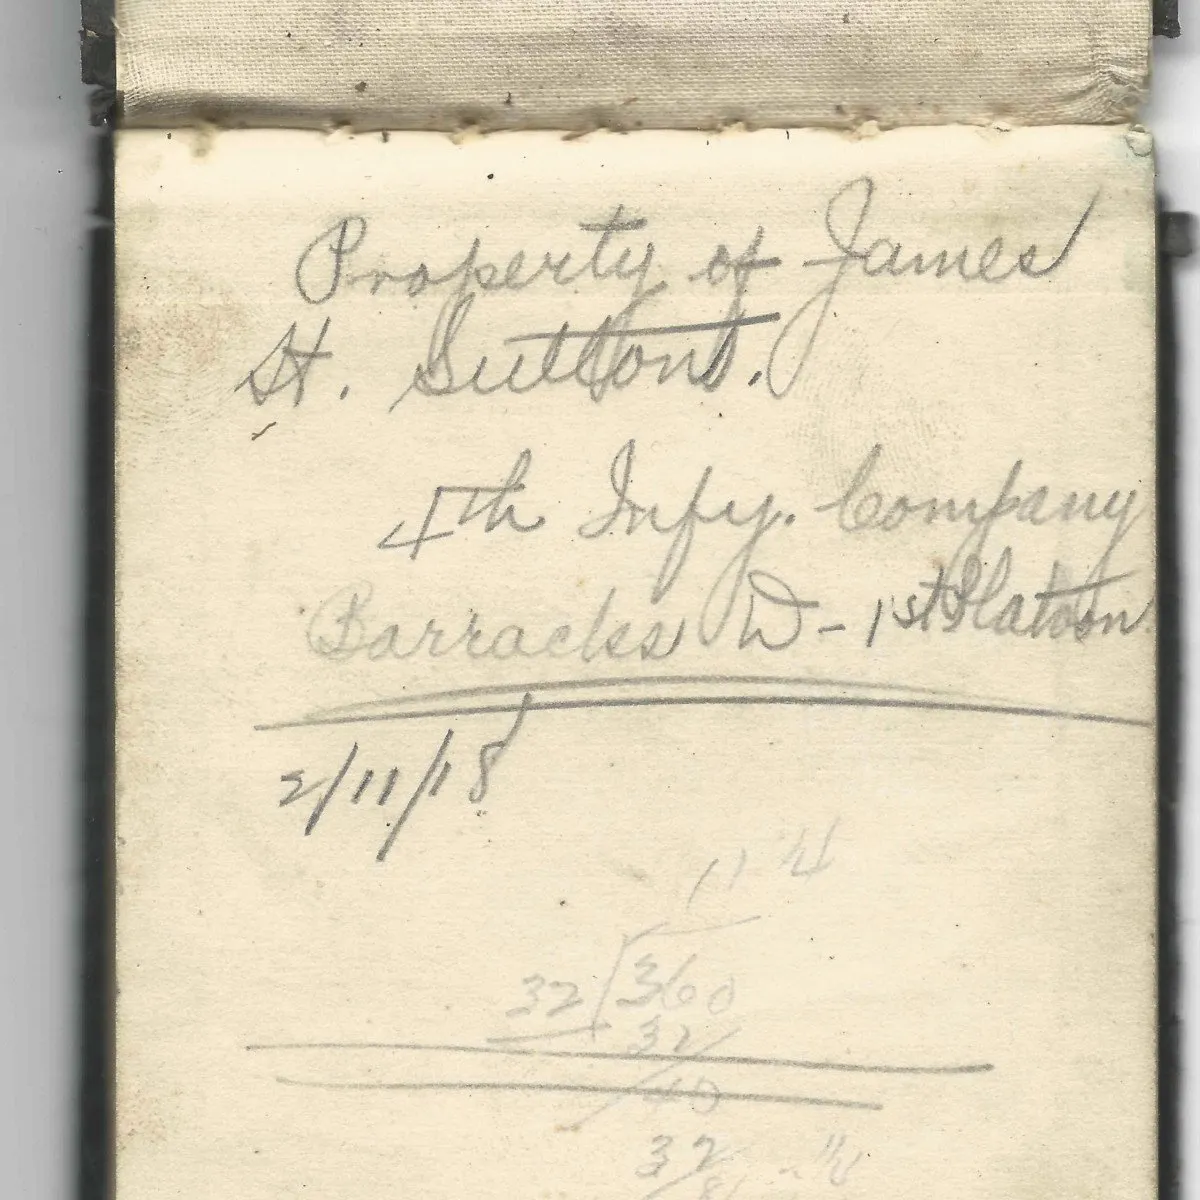 Property of James
H. Suttons.
4th Infy. Company
Barracks D - 1st Platoon
2/11/18
11 1/4
32 360
32
40
32
8